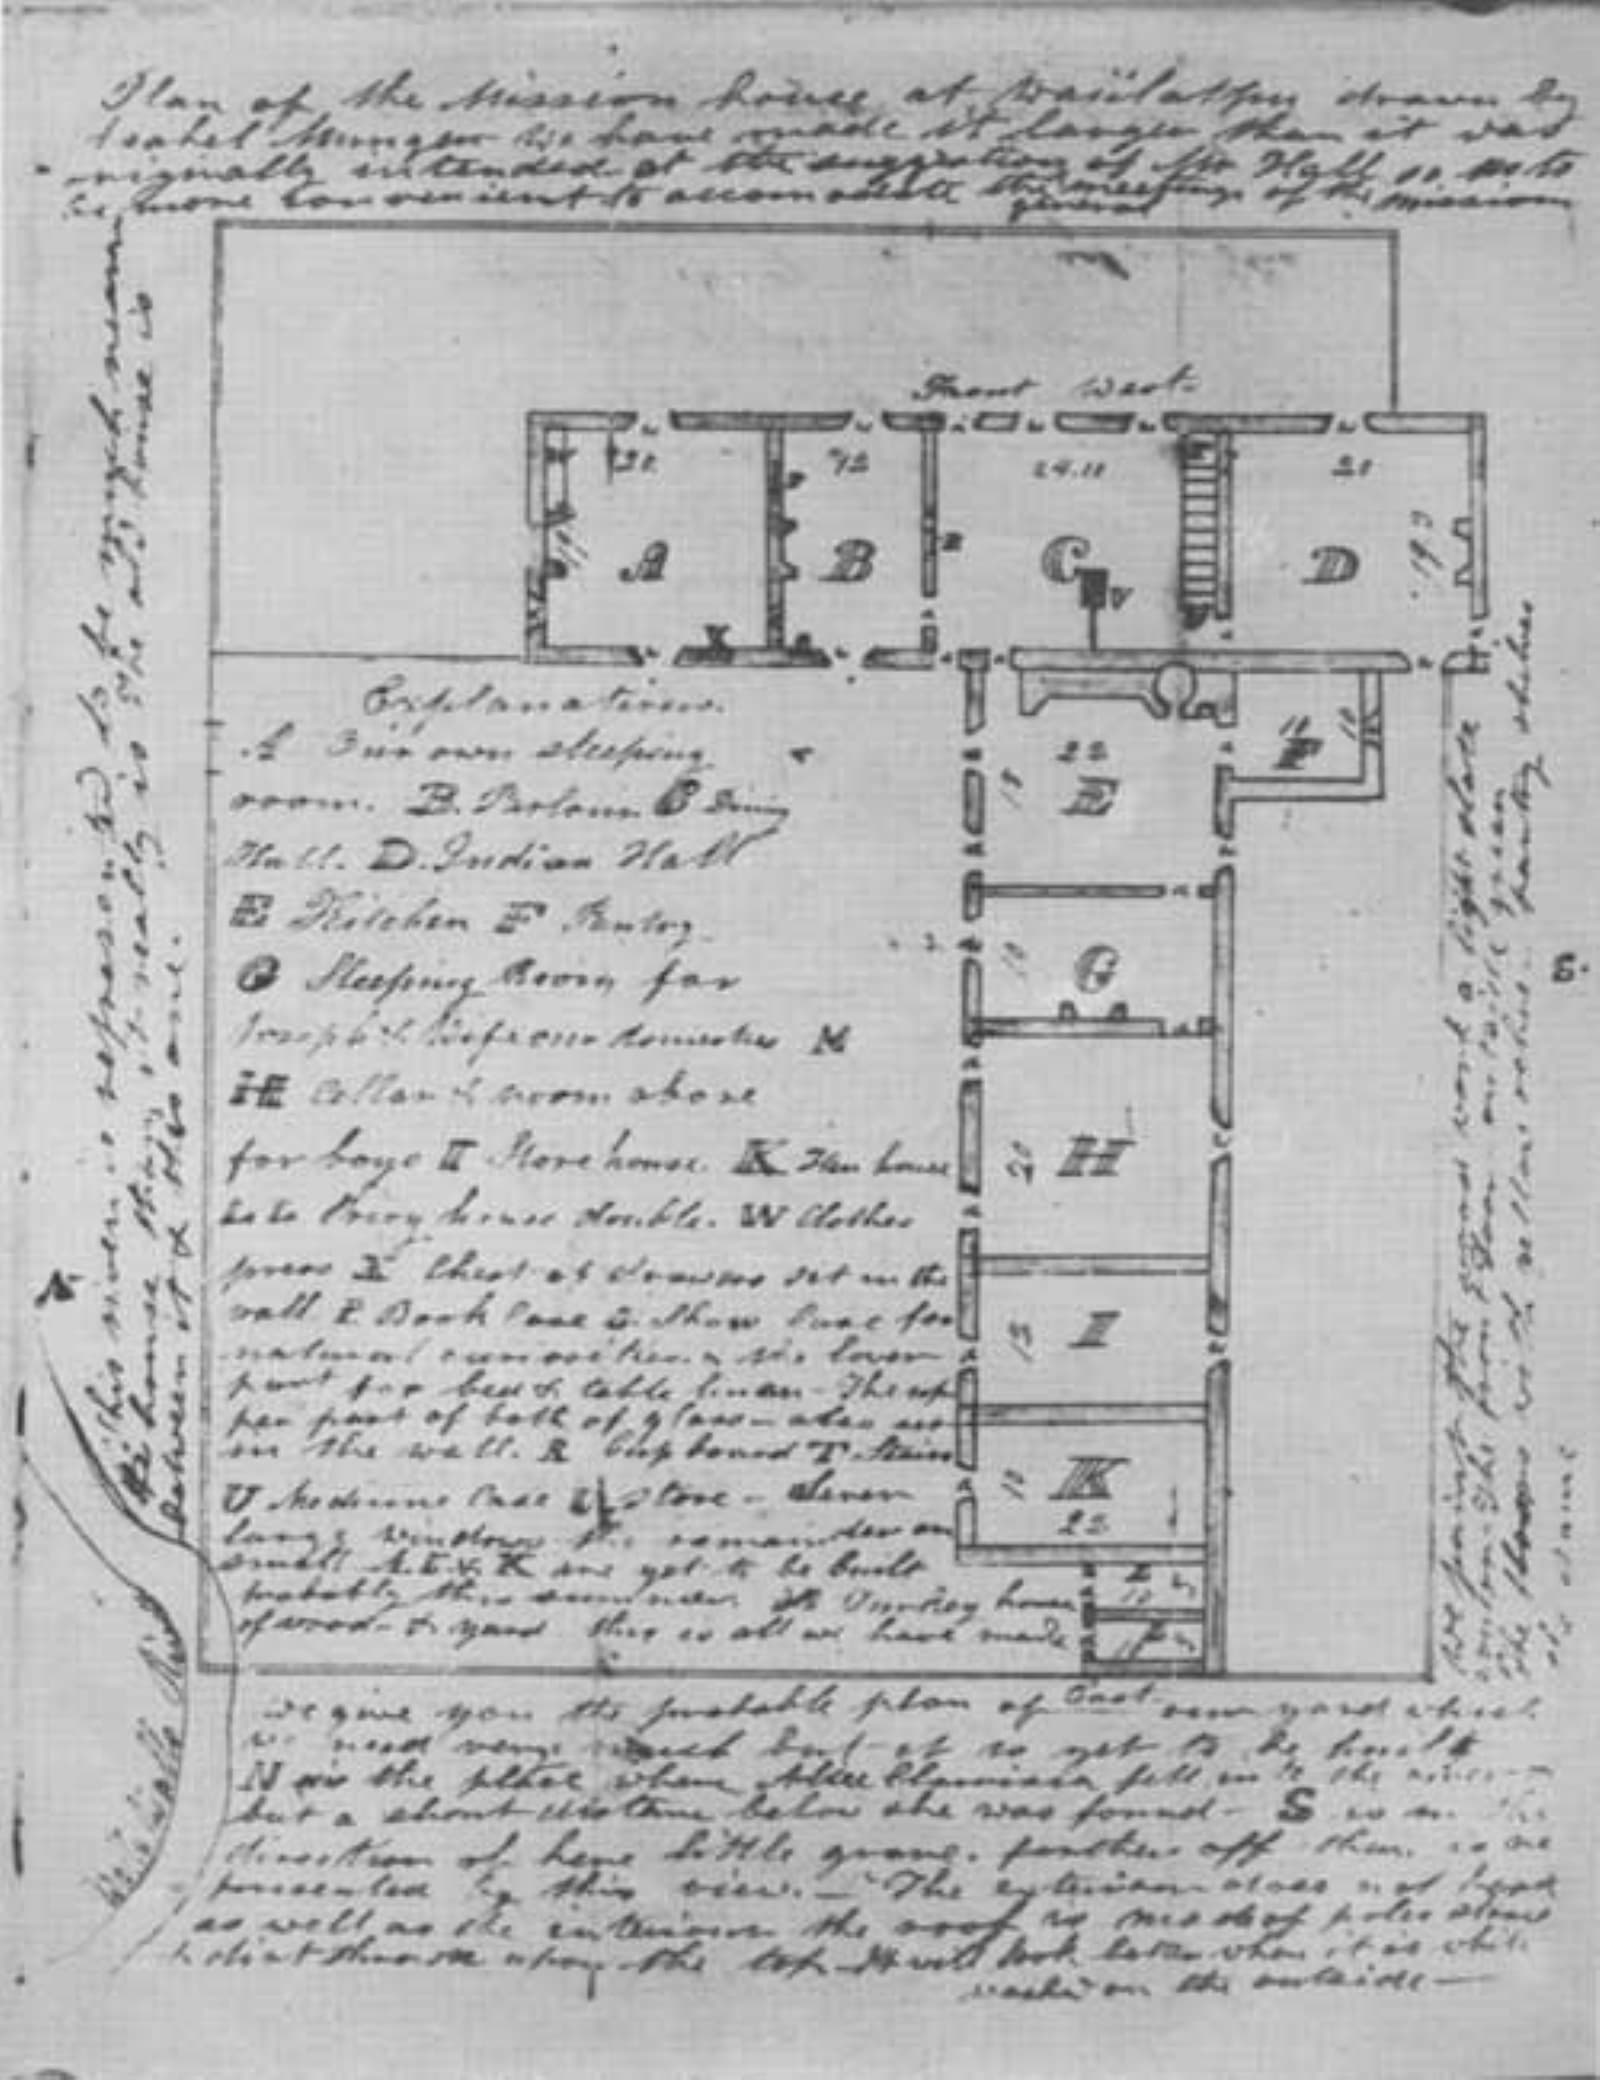 Plan of the Mission house at Waiilatpu drawn by
Asahel Munger we have made it larger than it was
originally intended at the suggestion of Mr Hall so as to
be more convenient to accomodate the general meetings of the mission
Front West
20
12
24.11
21
19.3
A
B
R
C
V
D
X
Explanation.
A Our own sleeping
room. B. Parlour C Dining
Hall. D. Indian Hall
E Kitchen F Pantry
G Sleeping Room for
Joseph & Wife our domestics
H Cellar & room above
for boys I Storehouse. K Hen house
Privy house double. W Clothes
press X Chest of drawers set in the
wall. P. Book Case Show Case for
natural curiosities & the lower
part for bed & table linen - The up
per part of both of glass - also set
in the wall. R Cupboard T Stairs
U Medicine Case Stove - Seven
large windows the remainder are
small. I & K are yet to be built
probably this summer. Turkey house
of wood - & yard this is all we have made
22
18
E
F
10
G
20
H
I
10
K
22
N
S.
This river is represented to be
the house than it really is The old house is
between it & this one.
Walla Walla River
We paint the wood work a light slate
The floors with yellow ochre
East
we give you the probable plan of our yard which
we need very much but it is yet to be built
N is the place where Alice Clarissa fell into the river -
but a short distance below she was found - S is in the
direction of her little grave. farther off than is re
presented by this view. - The exterior does not look
as well as the interior the roof is made of poles straw
& dirt thrown upon the top - It will look better when it is white
washed on the outside -